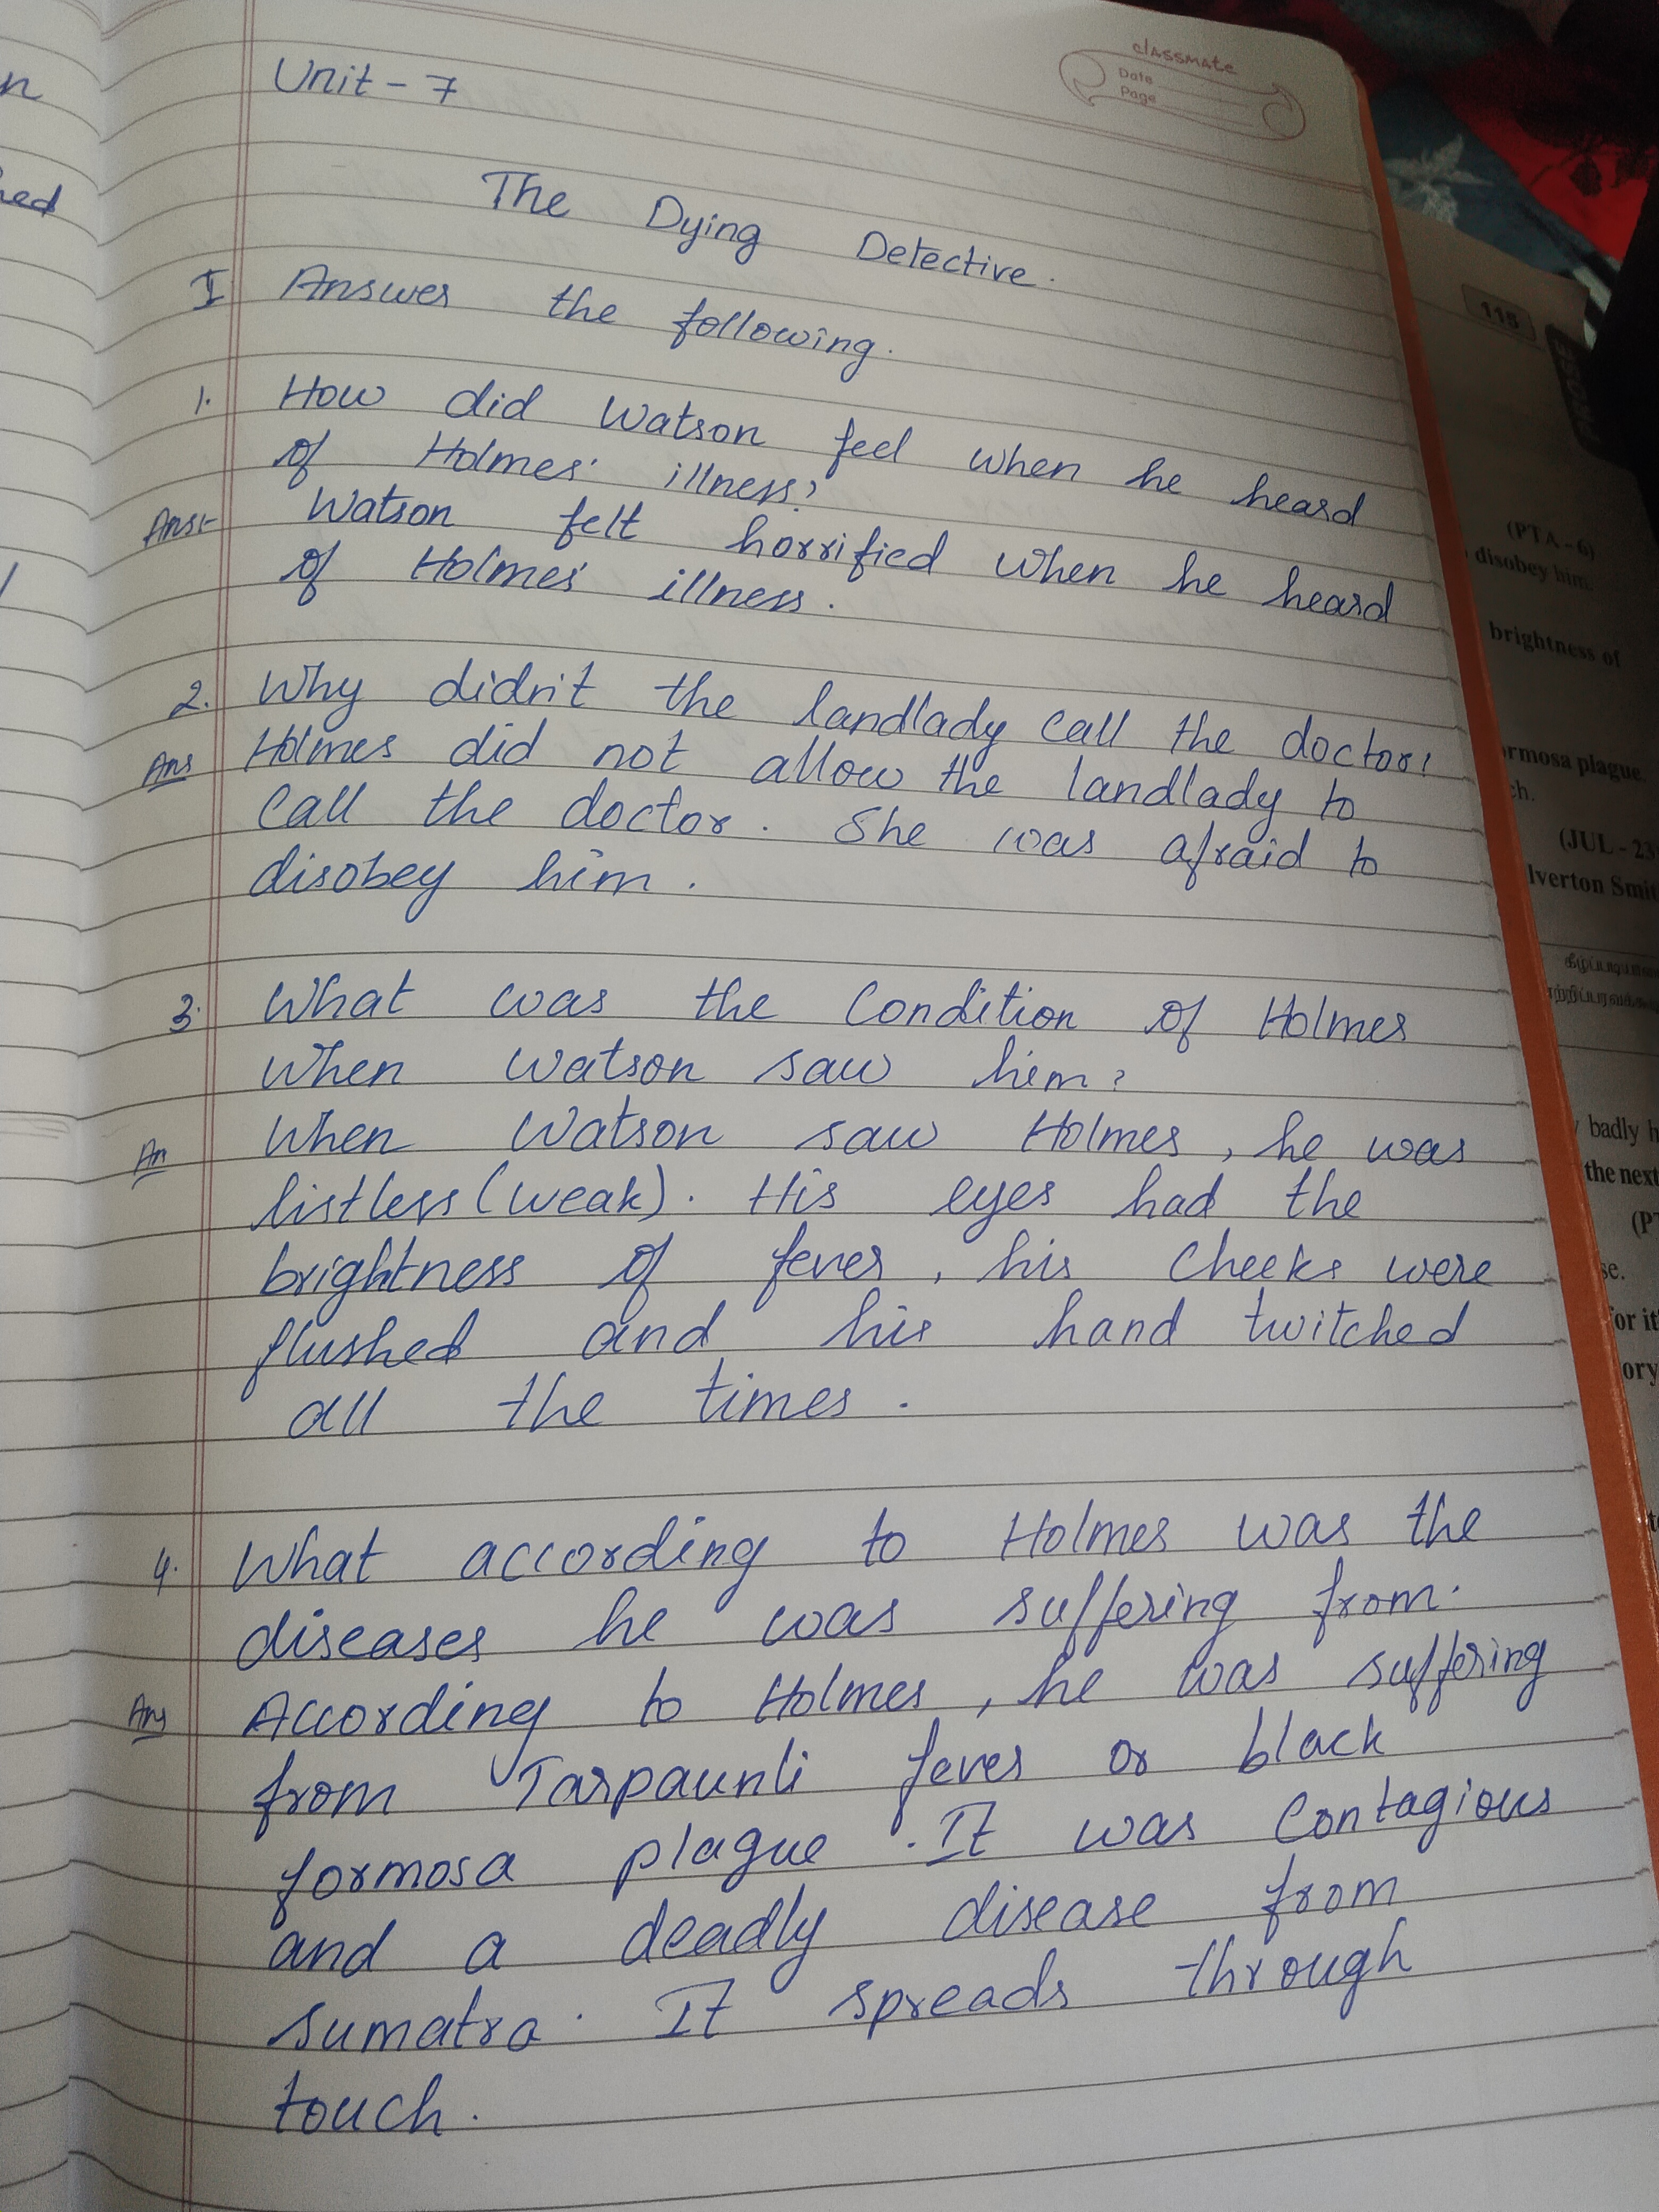 classmate
Date
Page
Unit - 7
The Dying Detective.
I Answer the following.
1. How did Watson feel when he heard
of Holmes' illness?
Ans:- Watson felt horrified when he heard
of Holmes' illness.
2. Why didn't the landlady call the doctor?
Ans Holmes did not allow the landlady to
call the doctor. She was afraid to
disobey him.
3. What was the condition of Holmes
when Watson saw him?
An When Watson saw Holmes, he was
listless (weak). His eyes had the
brightness of fever, his cheeks were
flushed and his hand twitched
all the times.
4. What according to Holmes was the
diseases he was suffering from.
Ans According to Holmes, he was suffering
from Tarpaunli fever or black
formosa plague. It was contagious
and a deadly disease from
sumatra. It spreads through
touch.
ned
115
PROSE
(PTA - 6)
disobey him.
brightness of
ormosa plague.
ch.
(JUL - 23
lverton Smit
badly h
the next
(PT
se.
for it
ory